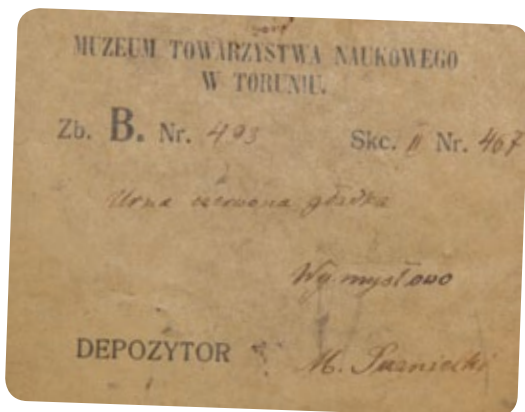 MUZEUM TOWARZYSTWA NAUKOWEGO
W TORUNIU.
Zb. B. Nr. 493 Skc. II Nr. 467
Urna czerwona gładka
Wymysłowo
DEPOZYTOR M.